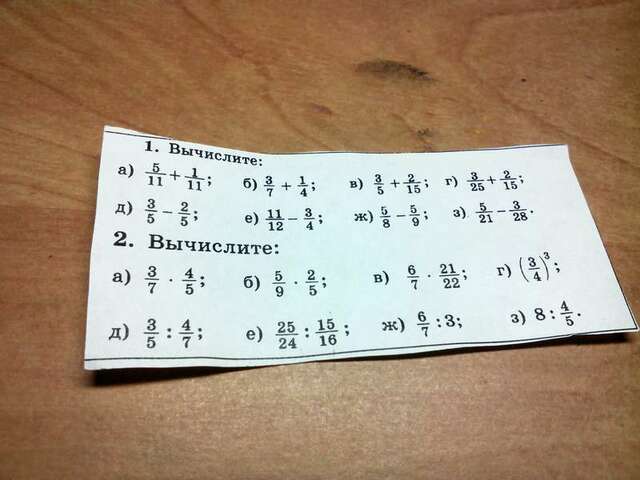 1. Вычислите:
а) 5/11 + 1/11; б) 3/7 + 1/4; в) 3/5 + 2/15; г) 3/25 + 2/15;
д) 3/5 − 2/5; е) 11/12 − 3/4; ж) 5/8 − 5/9; з) 5/21 − 3/28.
2. Вычислите:
а) 3/7 · 4/5; б) 5/9 · 2/5; в) 6/7 · 21/22; г) (3/4)³;
д) 3/5 : 4/7; е) 25/24 : 15/16; ж) 6/7 : 3; з) 8 : 4/5.